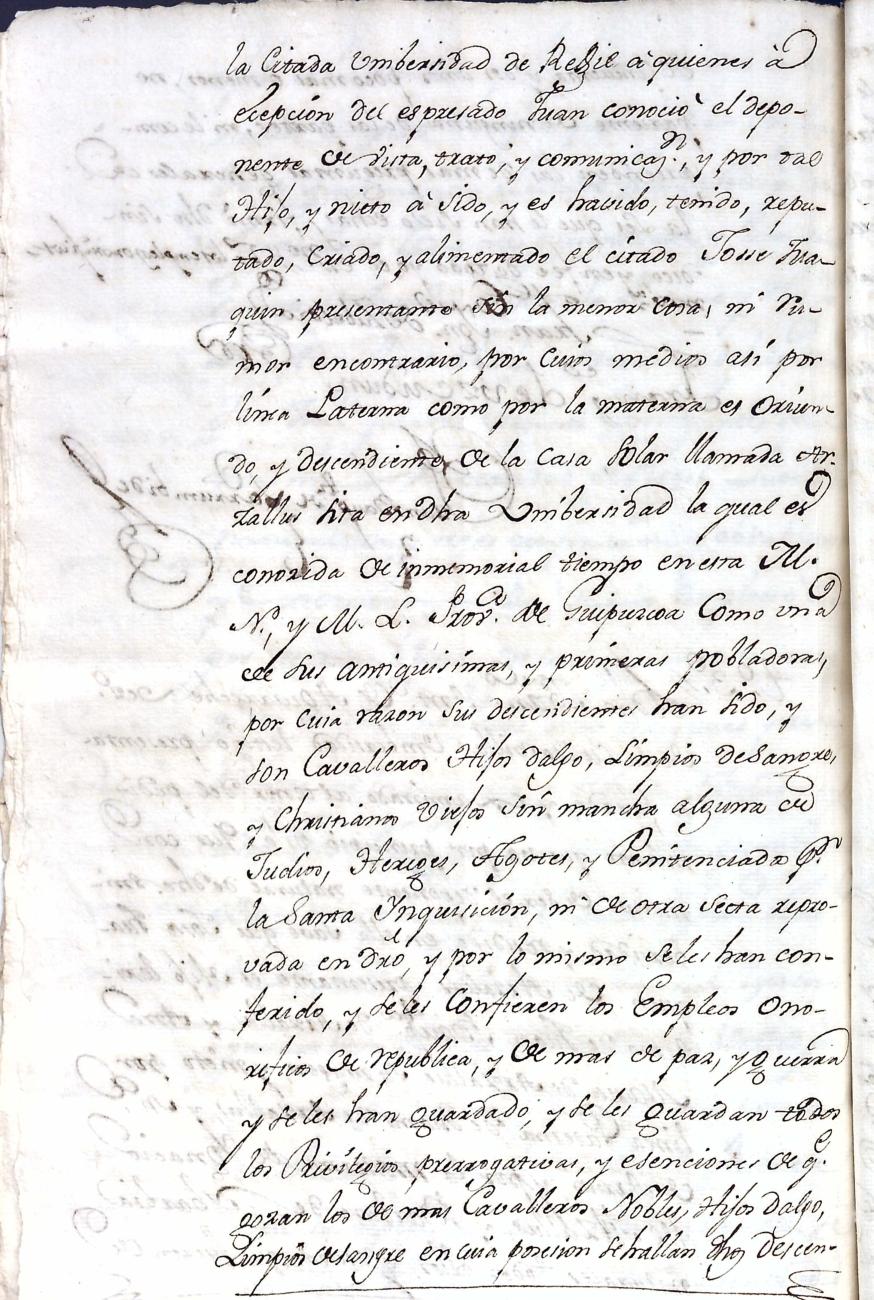 la Citada Vnibersidad de Regil à quienes à
ecepción del espresado Juan conociò el depo-
nente de vista, trato, y comunicaz.n, y por tal
Hijo, y nieto à sido, y es havido, tenido, repu-
tado, Criado, y alimentado el citado Josse Jua-
quin presentante sin la menor cosa, ni ru-
mor encontrario, por cuios medios así por
línea Paterna como por la materna es oriun-
do, y descendiente de la Casa Solar llamada Ar-
zallus sita en dha Vnibersidad la qual es
conozida de inmemorial tiempo en esta M.
N., y M. L. Prov.a de Guipuzcoa Como vna
de sus antiquisimas, y primeras pobladoras,
por cuia razon sus descendientes han sido, y
son Cavalleros Hijos dalgo, Limpios de Sangre,
y Christianos viejos sin mancha alguna de
Judios, Hereges, Agotes, y Penitenciados Pr.
la Santa Ynquisición, ni de otra secta repro-
vada en drõ, y por lo mismo se les han con-
ferido, y se les Confieren los Empleos ono-
rificos de republica, y de mas de paz, y guerra
y se les han guardado, y se les guardan todos
los Privilegios, prerrogativas, y esenciones de q.e
gozan los de mas Cavalleros Nobles, Hijos Dalgo,
Limpios de sangre en cuia posesion se hallan dhos descen-